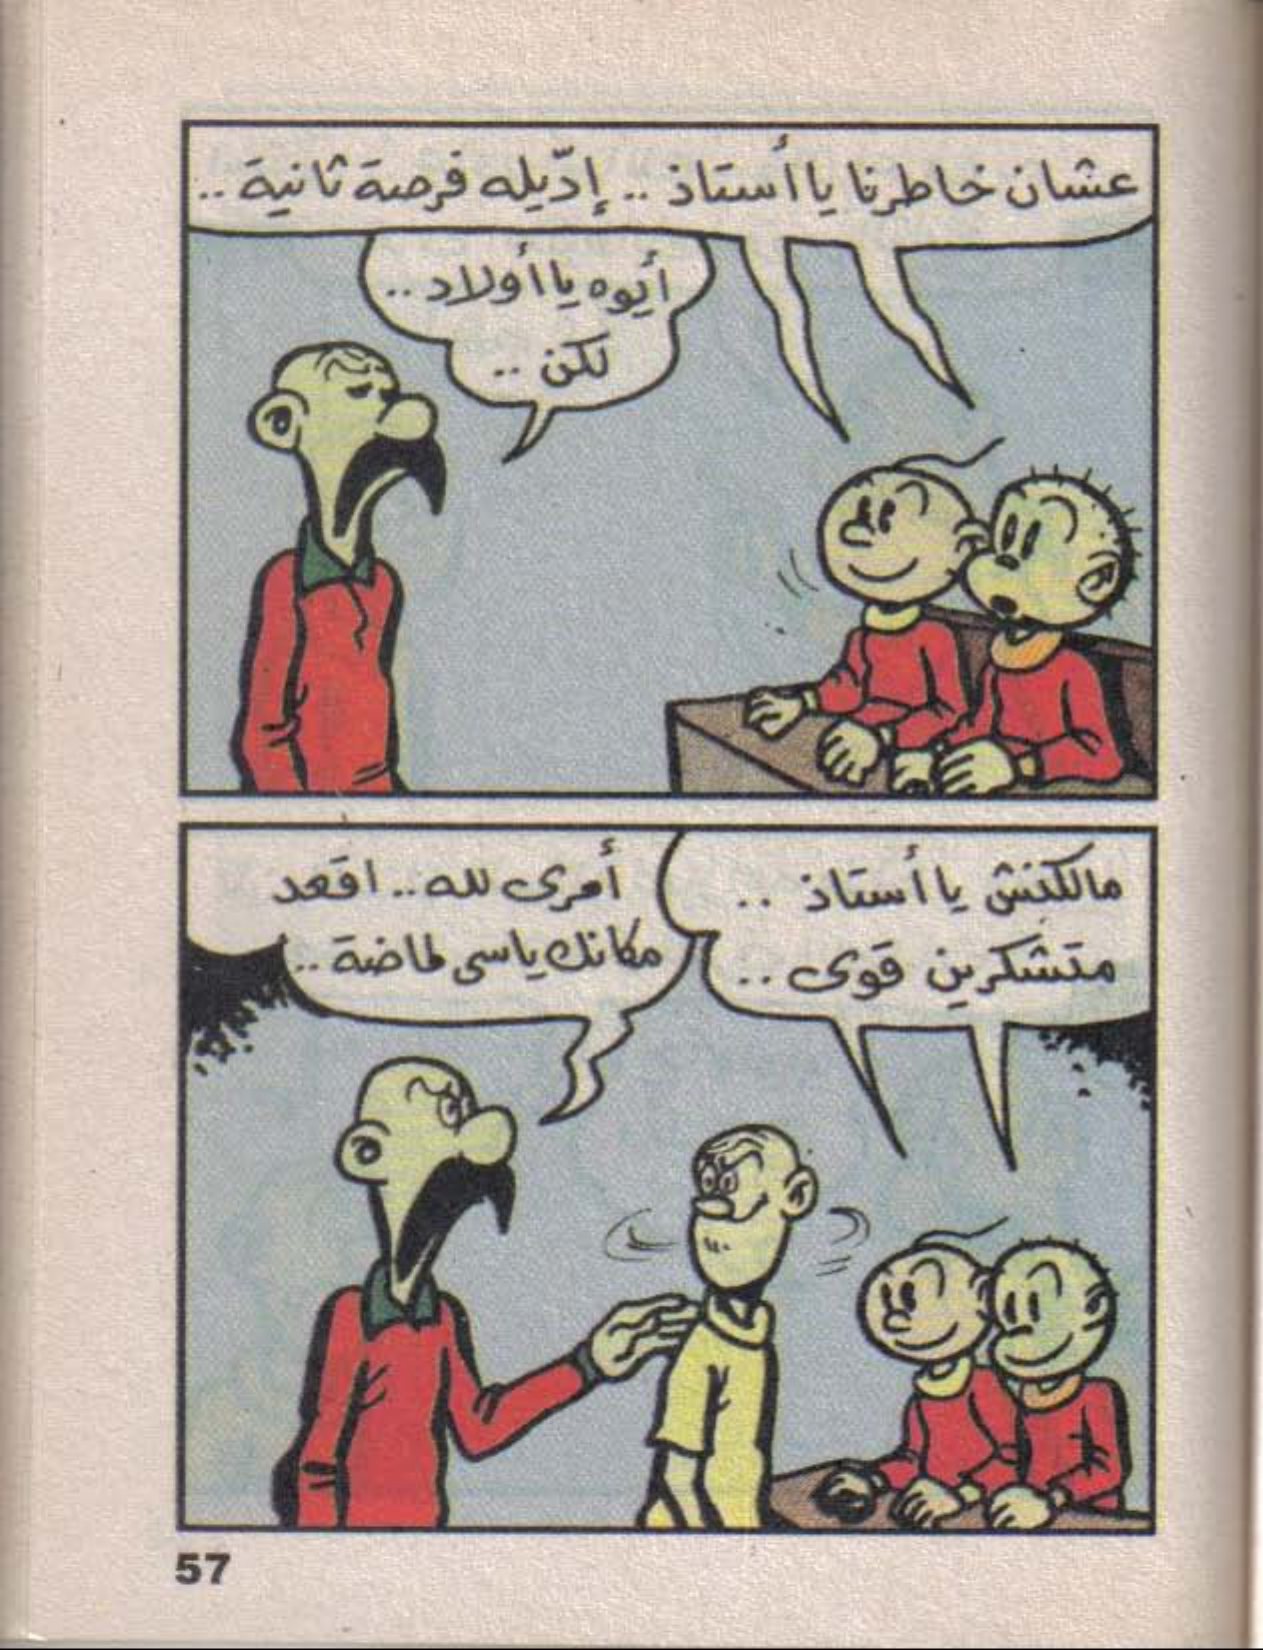 عشان خاطرنا يا أستاذ .. إدّيله فرصة ثانية ..
أيوه يا أولاد ..
لكن ..
مالكنش يا أستاذ ..
متشكرين قوى ..
أمرى لله .. اقعد
مكانك ياسى لماضة ..
57